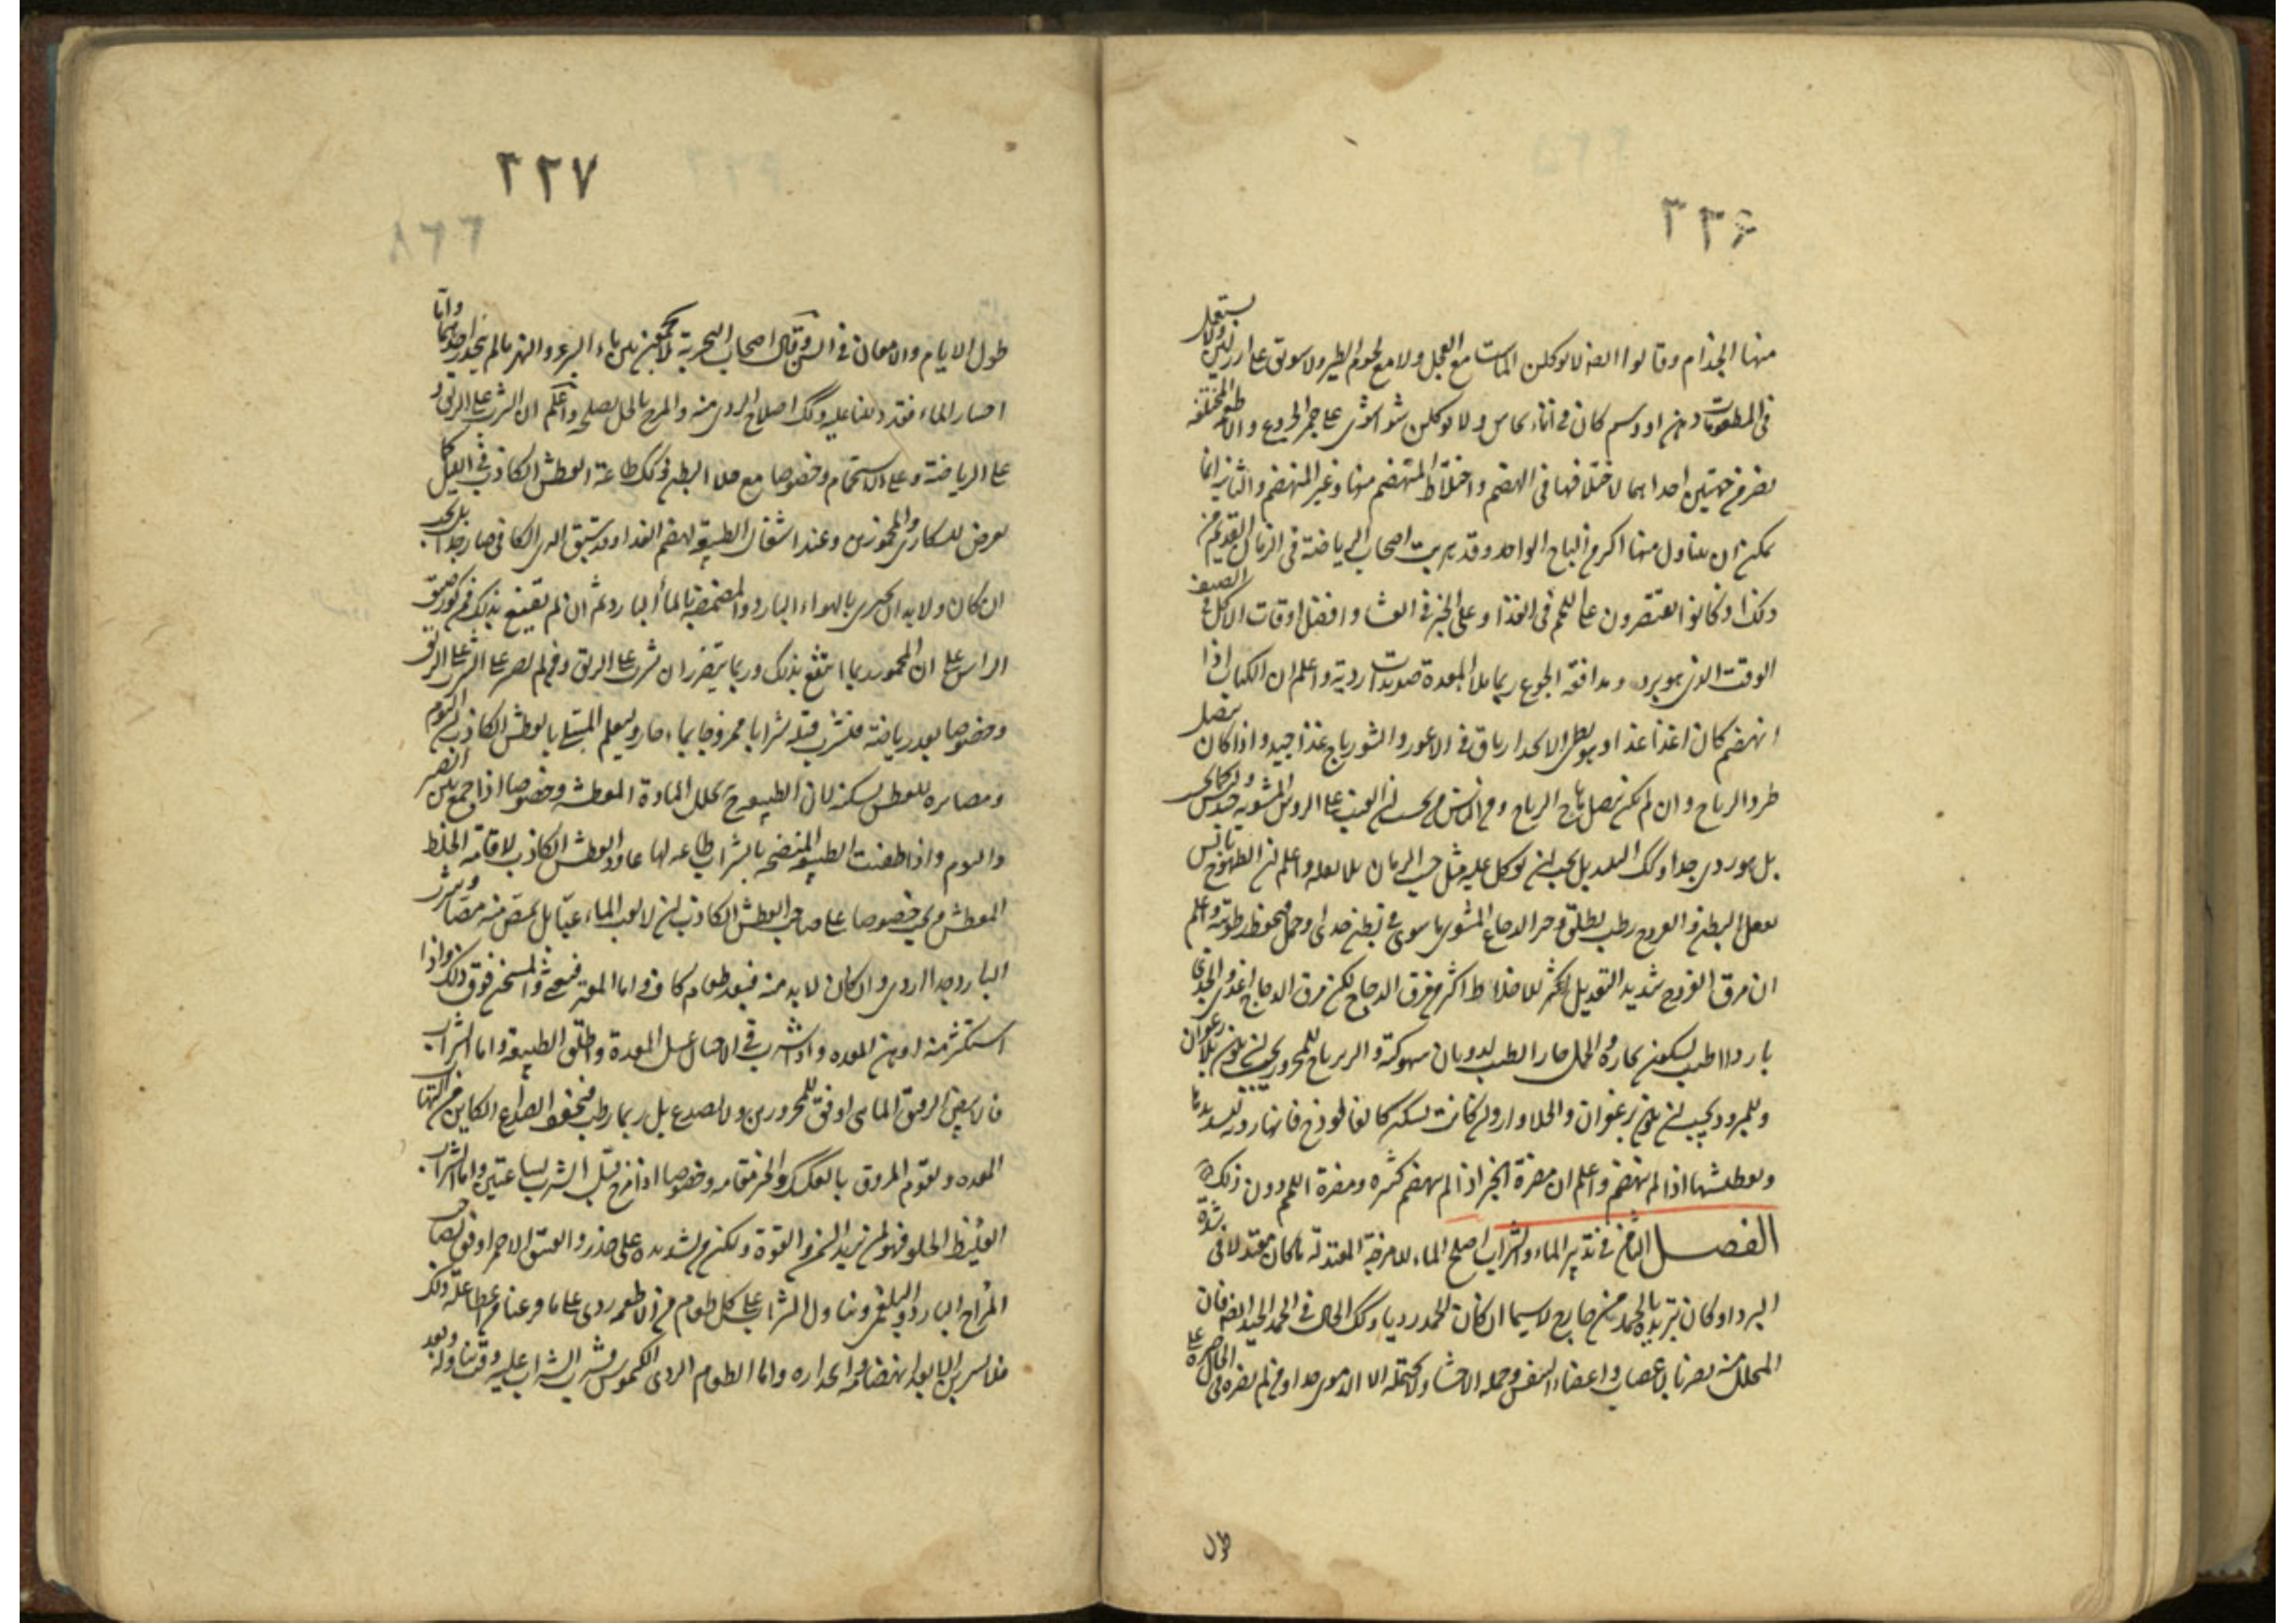 ٣٣۶
منها الجذام وقالوا ايضا لا يوكلن الماست مع الفجل ولا مع لحوم الطير ولا سويق على ارز بلبن ولا يستعمل
فى المطعومات دهن او دسم كان فى اناء نحاس ولا يوكلن شواء شوى على جمر الخروع والاطعمة المختلفة
تضر من جهتين احداهما لاختلافها فى الهضم واختلاط المنهضم منها وغير المنهضم والثانية انما
يمكن ان يتناول منها اكثر من الباج الواحد وقد هربت اصحاب الرياضة فى الزمان القديم من
ذلك اذ كانوا يقتصرون على اللحم فى الغذاء وعلى الخبز فى العشاء وافضل اوقات الاكل فى الصيف
الوقت الذى هو ابرد ومدافعة الجوع ربما ملا المعدة صديدات ردية واعلم ان الكباب اذا
انهضم كان اغذى غذاء وهو بطى الانحدار باق فى الاعور والشورباج غذا جيد واذا كان ببصل
طرد الرياح وان لم يكن ببصل هاج الرياح ومن الناس من يحسب ان العنب على الروس المشوية جيد وليس كما يحسب
بل هو ردى جدا وكك النبيذ بل يجب ان يوكل عليه مثل حب الرمان بلا ثفله واعلم ان الطيهوج يابس
يعقل البطن والفروج رطب يطلق وخير الدجاج المشوى ما شوى فى بطن جدى او حمل فيحفظ رطوبته واعلم
ان مرق الفروج شديد التعديل اكثر للاخلاط اكثر من مرق الدجاج لكن مرق الدجاج اغذى والجدى
باردا اطيب لسكون بخاره والحمل حارا اطيب لذوبان سهوكته والزيرباج للمحرور يجب ان يكون بلا زعفران
وللمبرود يجب ان يكون بزعفران والحلاوا وان كانت بسكر كالفالوذج فانها ردية لتسديدها
وتعطيشها اذا لم تنهضم واعلم ان مضرة الخبز اذا لم ينهضم كثيرة ومضرة اللحم دون ذلك
الفصل الثامن فى تدبير الماء والشراب اصلح الماء للامزجة المعتدلة ما كان معتدلا فى شدة
البرد او كان تبريده بالجمد من خارج لا سيما ان كان الجمد رديا وكك الحال فى الجمد الجيد ايضا فان
المتحلل منه يضر بالاعصاب واعضاء النفس وجملة الاحشاء ولا يحتمله الا الدموى جدا وان لم يضره فى الحال ضره على
طول
٣٣٧
طول الايام والامعان فى السن وقال اصحاب التجربة لا تجمعن بين ماء البير والنهر ما لم ينحدر احدهما واما
اختيار الماء فقد دللنا عليه وكك اصلاح الردى منه والمزج بالخل يصلحه واعلم ان الشرب على الريق و
على الرياضة وعلى الاستحمام وخصوصا مع خلاء البطن وكك طاعة العطش الكاذب فى الليل كما
يعرض للسكارى والمخمورين وعند اشتغال الطبيعة بهضم الغذا وقد سبق الرى الكافى ضار جدا بل يجب
ان كان ولا بد ان يجتزى بالهواء البارد والمضمضة بالماء البارد ثم ان لم يقنع بذلك فمن كوز ضيق
الراس على ان المخمور ربما انتفع بذلك وربما يتضرر ان شرب على الريق ومن لم يصبر على الشرب على الريق
وخصوصا بعد رياضة فليشرب قبله شرابا ممزوجا بماء حار وليعلم المبتلى بالعطش الكاذب ان النوم
ومصابرة للعطش يسكنه لان الطبيعة ح تحلل المادة المعطشة وخصوصا اذا جمع بين الصبر
والنوم واذا طفئت الطبيعة المنضجة بالشراب طاعة لها عاود العطش الكاذب لاقامة الخلط
المعطش ويجب خصوصا على صاحب العطش الكاذب ان لا يعب الماء عبا بل يمص منه مصا وشرب
البارد جدا ردى وان كان لا بد منه فبعد طعام كاف واما الفاتر فيغثى والمسخن فوق ذلك واذا
استكثر منه اوهن المعده واذا شرب فى الاحيان غسل المعدة واطلق الطبيعة واما الشراب
فالابيض الرقيق المائى اوفق للمحرورين ولا يصدع بل ربما رطب فيخفف الصداع الكاين من التهاب
المعده ويقوم المروق بالعسل والخبز مقامه وخصوصا اذا مزج قبل الشرب بساعتين واما الشراب
الغليظ الحلو فهو لمن يريد السمن والقوة وليكن من تسديده على حذر والعتيق الاحمر اوفق لصاحب
المزاج البارد والبلغمى وتناول الشراب على كل طعام من الاطعمه ردى على ما فرغنا من اعطا علة ذلك
فلا يشربن الا بعد انهضامه وانحداره واما الطعام الردى الكيموس فشرب الشراب عليه وقت تناوله وبعد